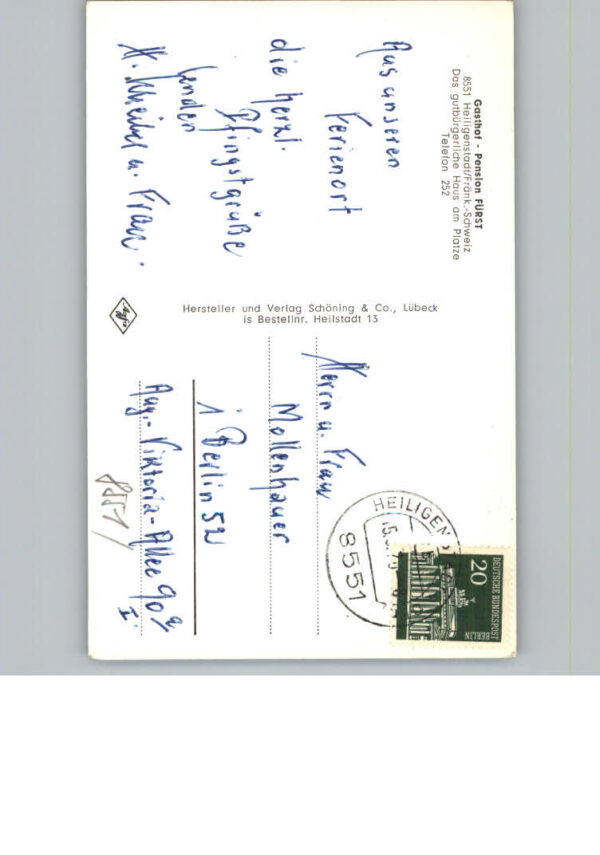 Gasthof - Pension FÜRST
8551 Heiligenstadt/Fränk.-Schweiz
Das gutbürgerliche Haus am Platze
Telefon 252
Aus unseren
Ferienort
die herzl.
Pfingstgrüße
senden
u. Frau.
Hersteller und Verlag Schöning & Co., Lübeck
is Bestellnr. Heilstadt 13
Agfa
Herrn u. Frau
Mollenhauer
1 Berlin 52
Aug.-Viktoria-Allee 90
I
8551
HEILIGEN
8551
20
DEUTSCHE BUNDESPOST
BERLIN